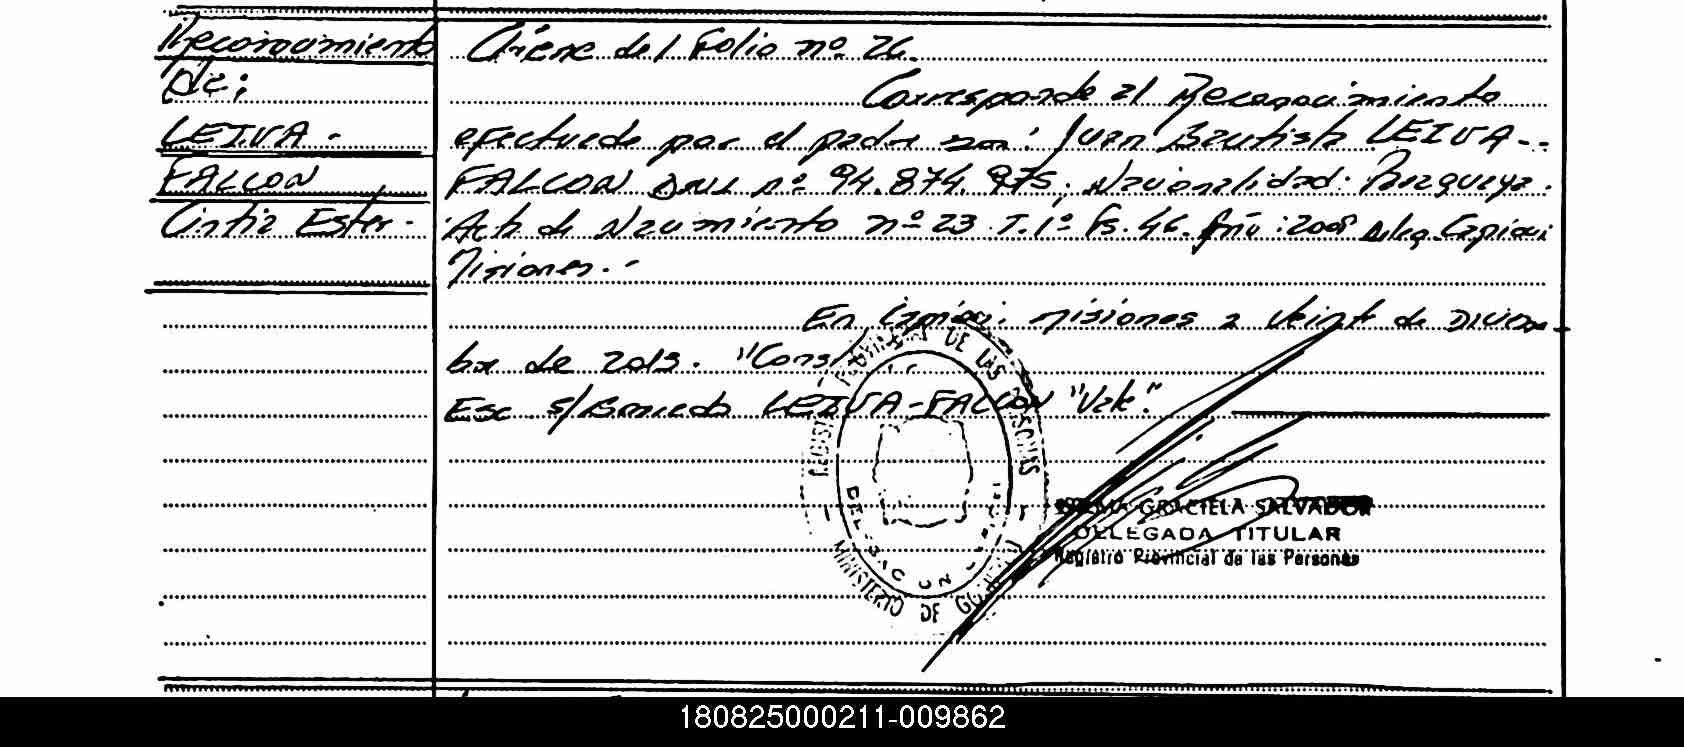 Reconocimiento
De:
LEIVA -
FALCON
Cintia Ester -
Viene del Folio nº 26.
Corresponde al Reconocimiento
efectuado por el padre don: Juan Bautista LEIVA--
FALCON DNI nº 94.874.975. Nacionalidad: Paraguaya.
Acta de Nacimiento nº 23 T.1º Fs. 46. Año: 2008 Deleg.
Misiones. -
En Misiones a veinte de Diciem-
bre de 2013. "Consi
Esc s/borrado LEIVA-FALCON "Vale".
REGISTRO PROVINCIAL DE LAS PERSONAS
MINISTERIO DE GOBIERNO
DELEGACION
GRACIELA SALVADOR
DELEGADA TITULAR
Registro Provincial de las Personas
180825000211-009862